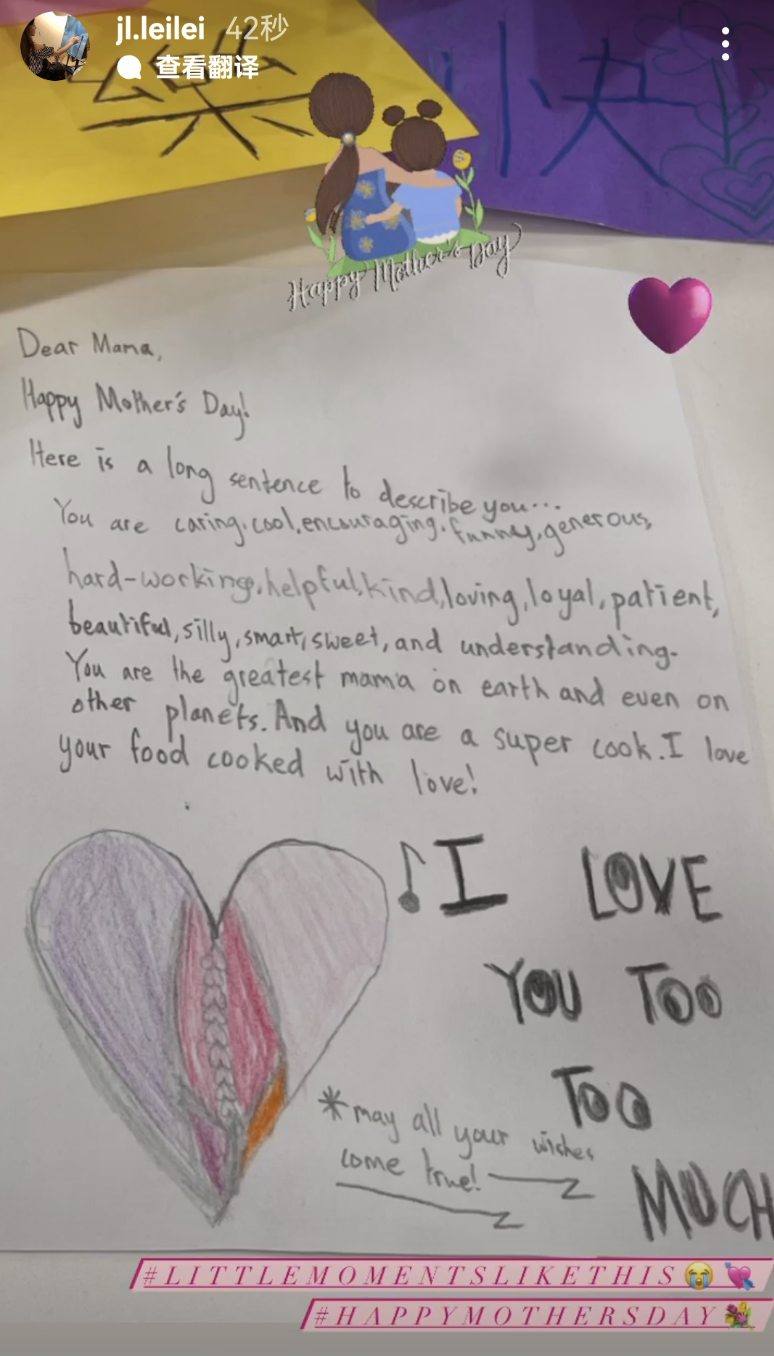 jl.leilei 42秒
查看翻译
樂 快
Happy Mother's Day
Dear Mama,
Happy Mother's Day!
Here is a long sentence to describe you...
You are caring, cool, encouraging, funny, generous,
hard-working, helpful, kind, loving, loyal, patient,
beautiful, silly, smart, sweet, and understanding.
You are the greatest mama on earth and even on
other planets. And you are a super cook. I love
your food cooked with love!
♪ I LOVE
YOU TOO
TOO
MUCH
*may all your wishes
come true!
#LITTLEMOMENTSLIKETHIS😭💘
#HAPPYMOTHERSDAY💐